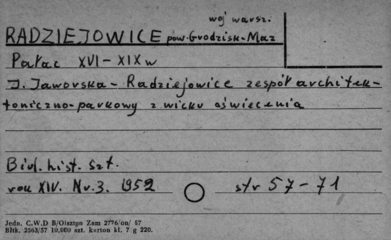 woj warsz.
RADZIEJOWICE pow. Grodzisk-Maz
Pałac XVI-XIX w
J. Jaworska - Radziejowice zespół architek-
toniczno-parkowy z wieku oświecenia
Biul. hist. szt.
rok XIV. Nr. 3. 1952 str 57-71
Jedn. C.W.D B/Olsztyn Zam 2776/on/ 57
Błtk. 2563/57 10,000 szt. karton kl. 7 g 220.